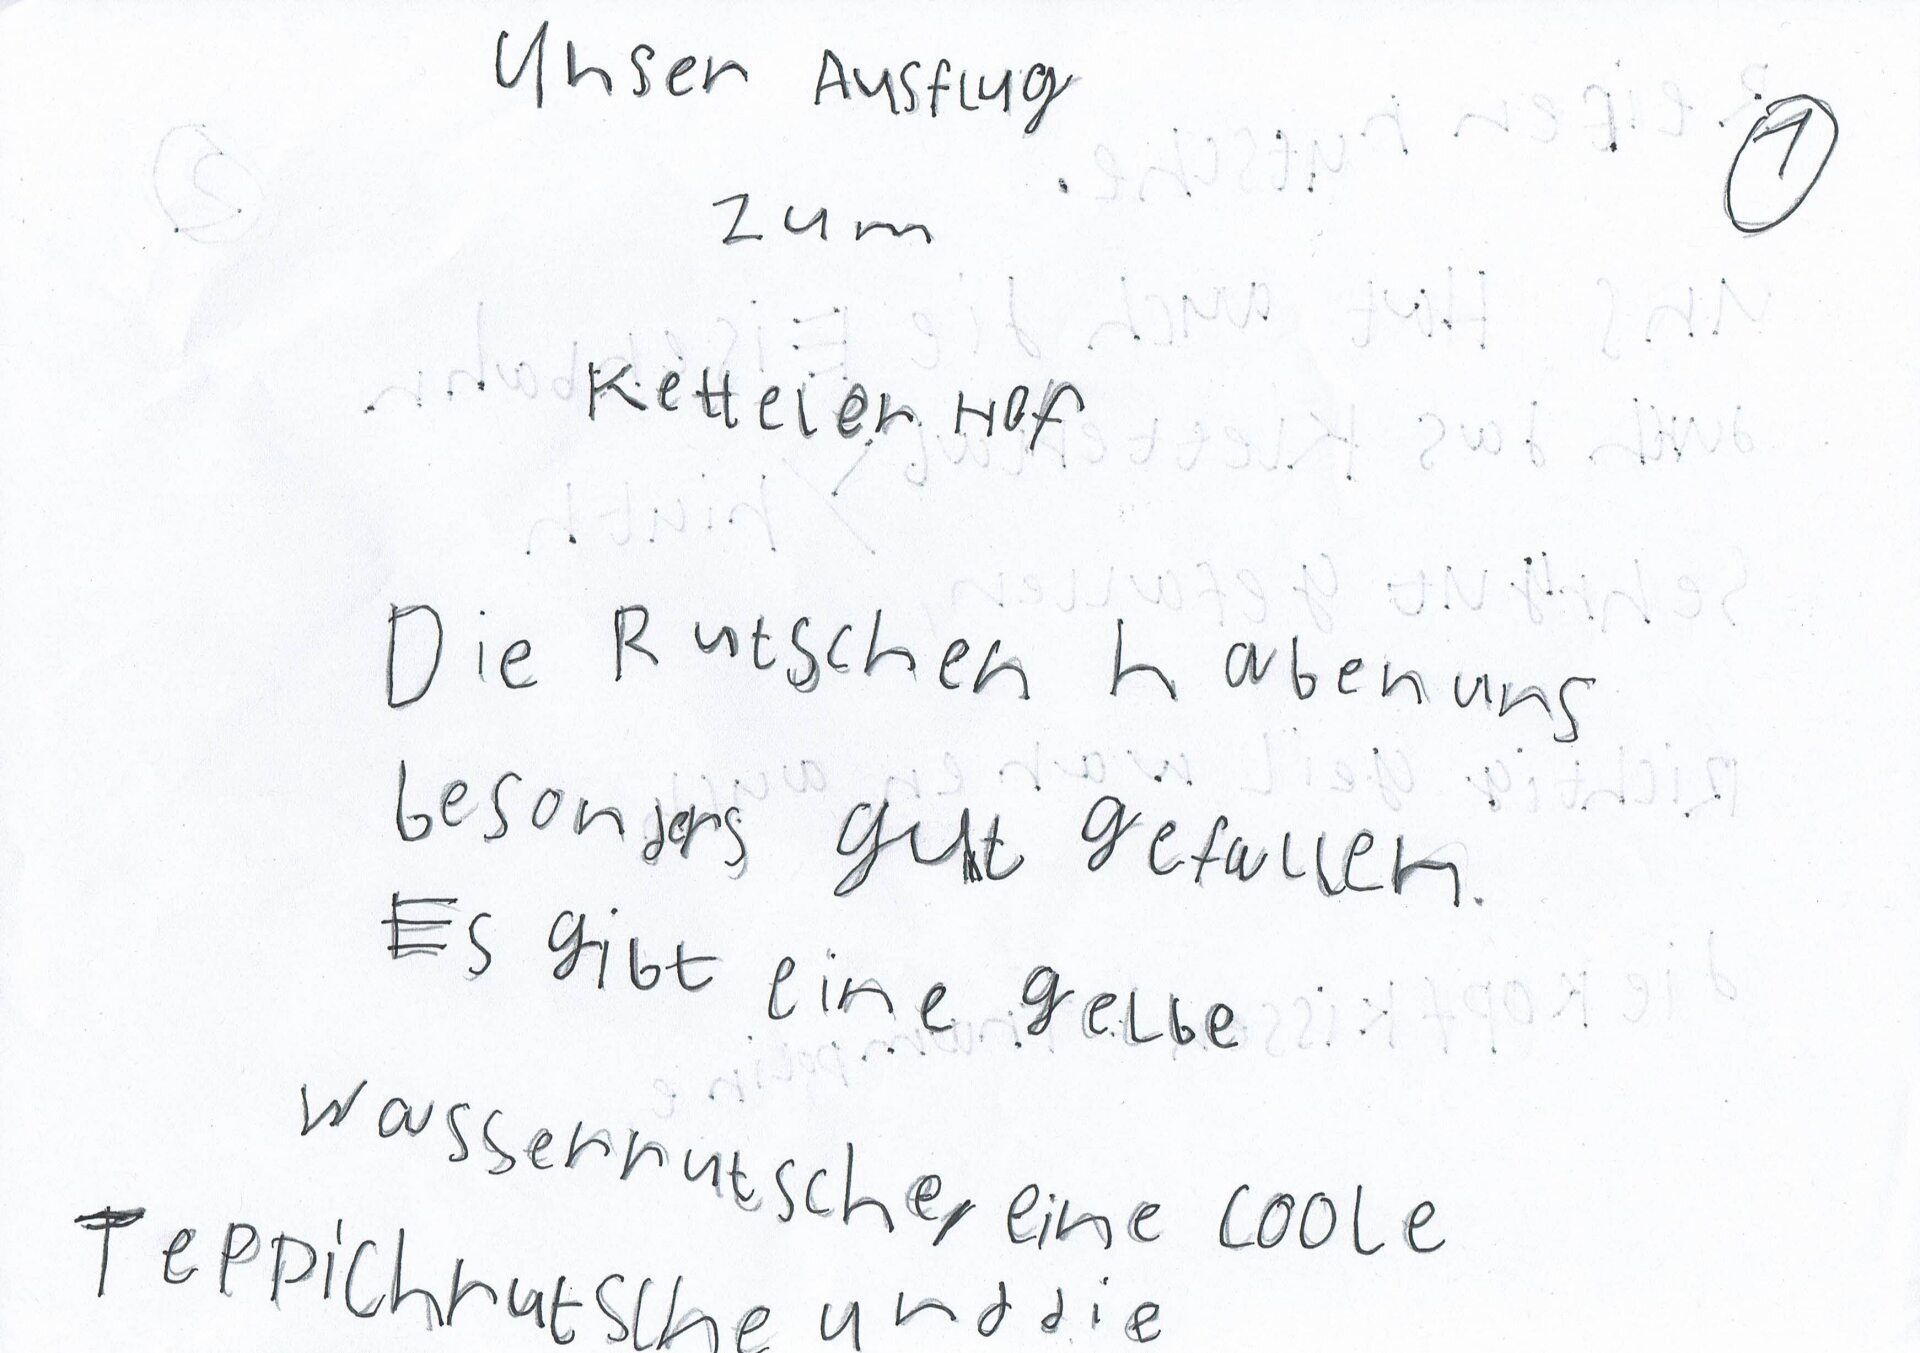 Unser Ausflug
1
zum
Ketteler Hof
Die Rutschen haben uns
besonders gut gefallen.
Es gibt eine gelbe
wasserrutsche, eine coole
Teppichrutsche und die